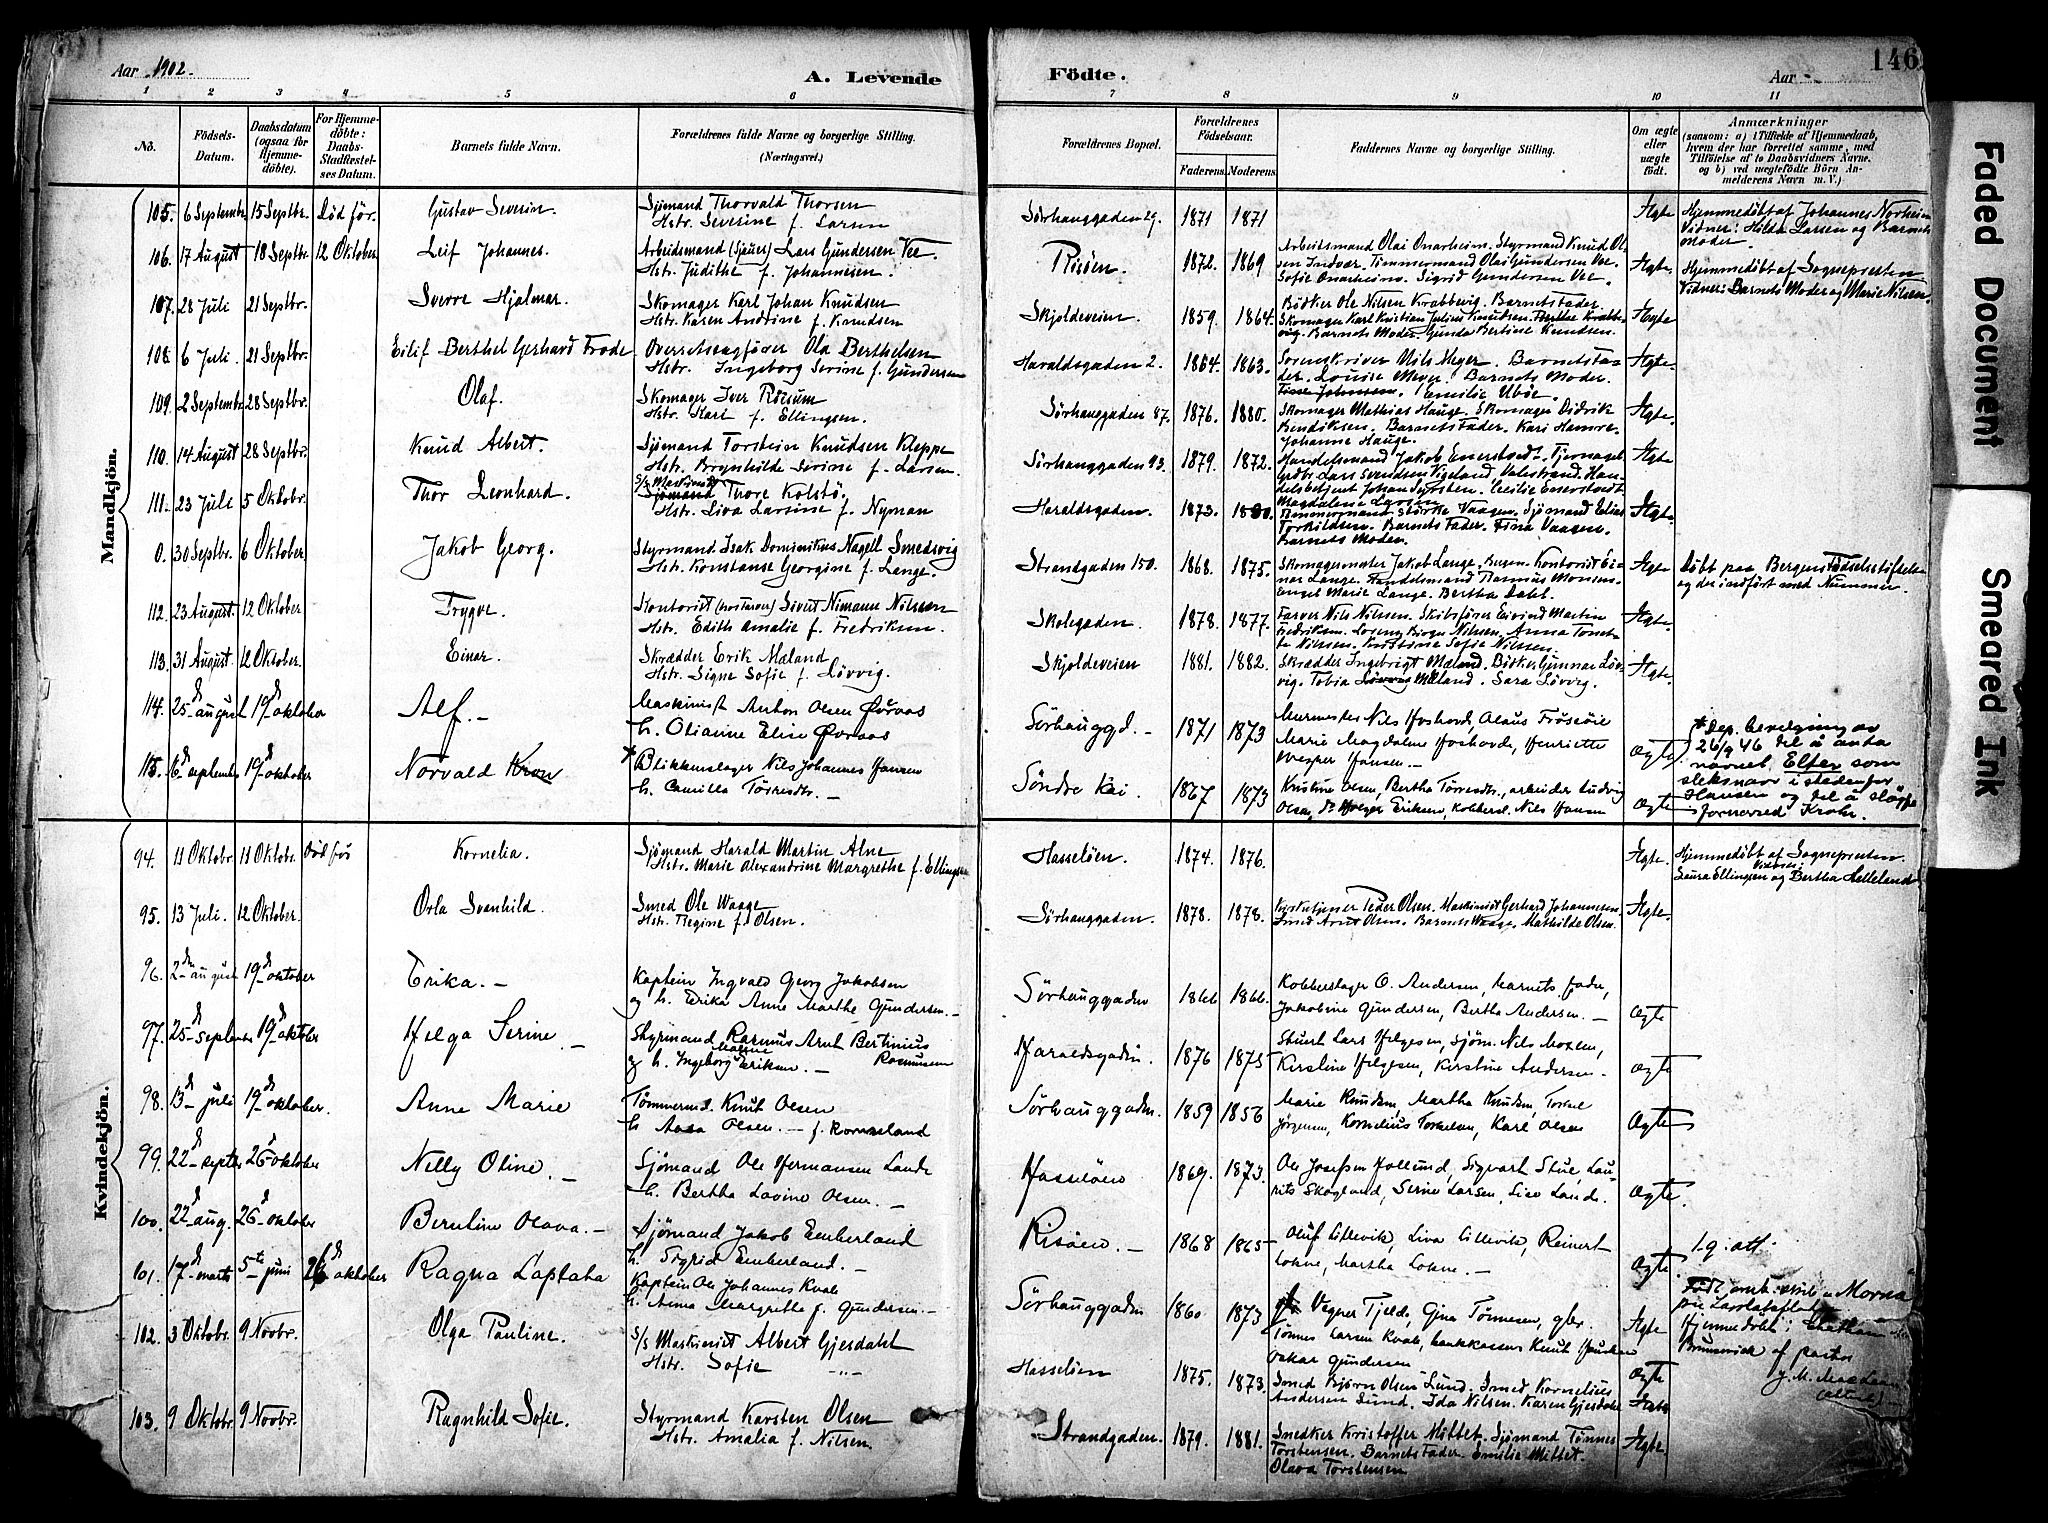 Aar 1902.
A. Levende
Födte.
Aar -
146
1 2 3 4 5 6 7 8 9 10 11
No.
Födsels-Datum.
Daabsdatum (ogsaa for Hjemmedöbte).
For Hjemmedöbte: Daabs-Stadfæstelses Datum.
Barnets fulde Navn.
Forældrenes fulde Navne og borgerlige Stilling.
(Næringsvei.)
Forældrenes Bopæl.
Forældrenes Födselsaar.
Faderens. Moderens.
Faddernes Navne og borgerlige Stilling.
Om ægte eller uægte født.
Anmærkninger
(saasom: a) i Tilfælde af Hjemmedaab, hvem der har forrettet samme, med Tilföielse af to Daabsvidners Navne, og b) ved uægtefödte Börn Anmelderens Navn m. V.)
Mandkjön.
105. 6 Septembr 15 Septbr. Död för. Gustav Severin. Sjömand Thorvald Thorsen
Hstr. Severine f. Larsen
Sörhauggaden 29. 1871 1871 Ægte Hjemmedöbt af Johannes Norheim
Vidner: Hilda Larsen og Barnets Moder.
106. 17 August 18 Septbr. 12 Oktober. Leif Johannes. Arbeidsmand (Sjauer) Lars Gundersen Vee
Hstr. Judithe f. Johannesen.
Risöen. 1872. 1869 Arbeitsmand Olai Onarheim. Styrmand Knud Olsen Indvær. Timmermand Olai Gundersen Vee.
Sofie Onarheim. Sigrid Gundersen Vee. Ægte. Hjemmedöbt af Sognepresten
Vidner: Barnets Moder og Marie Nilsen.
107. 28 Juli 21 Septbr. Sverre Hjalmar. Skomager Karl Johan Knudsen
Hstr. Karen Andrine f. Knudsen
Skjoldeveien. 1859. 1864. Bödker Ole Nilsen Krabbevig. Barnets Fader.
Skomager Karl Kristian Julius Knudsen.
Barnets Moder. Gunda Bertine Knudsen. Ægte
108. 6 Juli. 21 Septbr. Eilif Berthel Gerhard Frode. Overretssagförer Ola Berthelsen
Hstr. Ingeborg Serine f. Gundersen
Haraldsgaden 2. 1864. 1863. Sorenskriver Nils Meyer. Barnets Fader. Louise Meyer. Barnets Moder.
Emilie Uböe. Ægte.
109. 2 Septembr. 28 Septbr. Olaf. Skomager Iver Rössum
Hstr. Kari f. Ellingsen.
Sörhauggaden 87. 1876. 1880. Skomager Mathias Hauge. Skomager Didrik
Bendiksen. Barnets Fader. Kari Hamre.
Johanne Hauge. Ægte.
110. 14 August 28 Septbr. Knud Albert. Sjömand Torstein Knudsen Kleppe
Hstr. Brynhilde Serine f. Larsen.
Sörhauggaden 93. 1879. 1872. Ægte
111. 23 Juli 5 Oktobr. Thor Leonhard. S/s Maskinist Thore Kolstö.
Hstr. Liva Larsine f. Nyman
Haraldsgaden. 1873. 1880. Sjömand Elias
Torkildsen. Barnets Fader. Tina Vaagen.
Barnets Moder. Ægte.
0. 30 Septbr. 6 Oktober Jakob Georg. Styrmand Isak Dominikus Nagell Smedsvig
Hstr. Konstanse Georgine f. Lange.
Strandgaden 150. 1868. 1875. Skomagermester Jakob Lange. Bergen. Kontorist Einar Lange. Handelsmand Rasmus Monsen.
Engel Marie Lange. Bertha Dahl. Ægte Döbt paa Bergens Födselsstiftelse
og der indfört med Nummer.
112. 23 August. 12 Oktober Trygve. Kontorist Sivert Nimann Nilsen
Hstr. Edith Amalie f. Fredriksen.
Skolegaden. 1878. 1877. Farver Nils Nilsen. Skibsförer Eivind Martin
Fredriksen. Lorens Birger Nilsen. Ægte.
113. 31 August. 12 Oktober. Einar. Skrædder Erik Mæland
Hstr. Signe Sofie f. Lövvig.
Skjoldeveien 1881. 1882. Skrædder Ingebrigt Mæland. Gunnar Lövvig. Tobia Mæland. Sara Lövvig. Ægte.
114. 25d august 19d oktober Alf. - Maskinist Anton Olsen Övraas
h. Olianne Elise Övraas
Sörhauggd. - 1871 1873 Marie Magdalene Hoshovde, Henriette
Hansen. - Ægte
115. 16d september 19d oktober Norvald Kron * Blikkenslager Nils Johannes Hansen
h. Camilla Törresdtr. -
Söndre kai 1867 1873 Kristine Olsen, Bertha Törresdtr., arbeider Ludvig
Olsen, Holger Eriksen, Kobbersl. Nils Hansen Ægte
* Dep. bevilgning av
26/9 46 til å anta
navnet Elfter som
slektsnavn i stedenfor
Hansen og til å sløyfe
fornavned Krohn.
Kvindekjön.
94. 11 Oktobr. 11 Oktobr. Död för Kornelia. Sjömand Harald Martin Alne
Hstr. Marie Alexandrine Margrethe f. Ellingsen
Hasselöen. 1874. 1876. Ægte. Hjemmedöbt af Sognepresten.
Vidner:
Laura Ellingsen og Bertha Helleland
95. 13 Juli. 12 Oktober. Orla Svanhild. Smed Ole Waage
Hstr. Regine f. Olsen.
Sörhauggaden. 1878. 1878. Kirketjener Peder Olsen. Maskinist Gerhard Johannesen.
Smed Arnt Olsen. Barnets Mathilde Olsen. Ægte.
96. 2den august 19d oktober Erika. - Kaptein Ingvald Georg Jakobsen
og h. Erika Anne Marthe Gundersen. -
Sörhauggaden 1866 1866. Kobberslager O. Andersen, barnets fader,
Jakobine Gundersen, Bertha Andersen. - Ægte
97. 25d september 19d oktober Helga Serine - Styrmand Rasmus Arnt Bertinius
Rasmussen
og h. Ingeborg Malene Eriksen. -
Haraldsgaden. 1876 1875 Stuert Lars Helgesen, sjöm. Nils Moxen,
Kirstine Helgesen, Kirstine Andersen. - Ægte
98. 13d juli 19d oktober. Anne Marie Tömmermd. Knut Olsen
h. Aasa Olsen. - f. Kornseland
Sörhauggaden. 1859 1856 Marie Knudsen, Martha Knudsen, Torkel
Jörgensen, Kornelius Torkelsen, Karl Olsen Ægte
99. 22d septer 26 oktober Nelly Oline. - Sjömand Ole Hermansen Lande
h. Bertha Lovine Olsen. -
Hasselöen 1869. 1873. Ole Josefsen Hollund, Sigvart Stue, Laurits Skogland, Serine Larsen, Lise Lande. Ægte.
100. 22d aug. 26d oktober Berntine Olava. - Sjömand Jakob Emberland
h. Sigrid Emberland. -
Risöen. - 1868 1865 Oluf Lillevik, Liva Lillevik, Reinert
Lohne, Martha Lohne. - Ægte
101. 17d marts 5te juni 26d oktober Ragna Laplata Kaptein Ole Johannes Kvale
h. Anna Margrethe f. Gundersen. -
Sörhauggaden 1860. 1873 Vegner Tjelde, Gina Tönnesen, gbr.
Tönnes Larsen Kvale, bankkasserer Knut
Oskar Gundersen Ægte
1. g. att.
Födt omb. skib "Morna"
paa Laplatafloden
Hjemmedöbt i
Brunswick af pastor
J. M.
(attest) -
102. 3 Oktobr. 9 Novbr. Olga Pauline. S/s Maskinist Albert Gjesdahl
Hstr. Sofie -"-
Hasselöen 1875. 1873. Smed Björn Olsen Lund. Smed Kornelius
Andersen Lund. Ida Nilsen. Karen Gjesdahl Ægte
103. 9 Oktobr. 9 Novbr. Ragnhild Sofie. Styrmand Karsten Olsen
Hstr. Amalia f. Nilsen.
Strandgaden. 1879. 1881. Snedker Kristoffer Mittet. Sjömand Tönnes
Torstensen. Barnets Fader. Emilie Mittet.
Olava Torstensen Ægte.
Faded Document
Smeared Ink